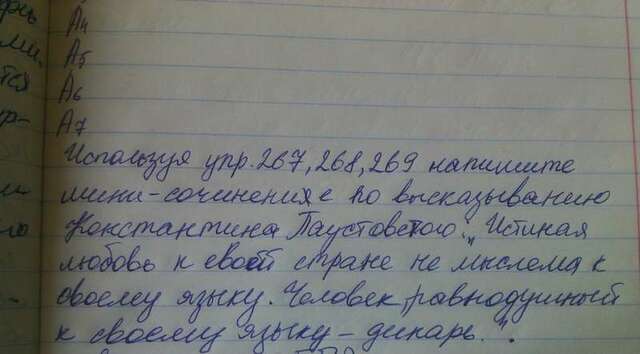 А4
А5
тся А6
А7
Используя упр. 267, 268, 269 напишите
мини-сочинение по высказыванию
Константина Паустовского: „Истиная
любовь к своей стране не мыслема к
своему языку. Человек, равнодушный
к своему языку – дикарь."